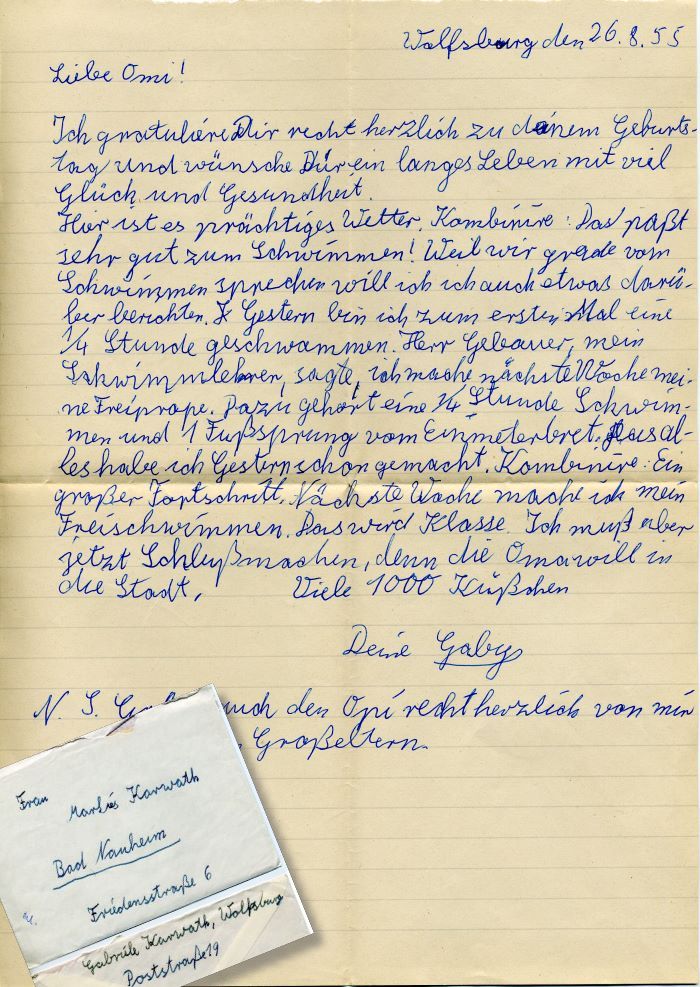 Wolfsburg den 26.8.55
Liebe Omi!
Ich gratuliere Dir recht herzlich zu deinem Geburts-
tag und wünsche Dir ein langes Leben mit viel
Glück und Gesundheit.
Hier ist es prächtiges Wetter. Kombinire: Das paßt
sehr gut zum Schwimmen! Weil wir grade vom
Schwimmen sprechen will ich ich auch etwas darü-
ber berichten. Gestern bin ich zum ersten Mal eine
1/4 Stunde geschwammen. Herr Gebauer, mein
Sskwimmlehrer, sagte, ich mache nächste Woche mei-
ne Freiprope. Dazu gehört eine 1/4 Stunde Schwim-
men und 1 Fußsprung vom Einmeterbret. Das al-
les habe ich Gestern schon gemacht. Kombinire: Ein
großer Fortschritt. Nächste Woche mache ich mein
Freischwimmen. Das wird Klasse. Ich muß aber
jetzt Schluß machen, denn die Oma will in
die Stadt. Viele 1000 Küßchen
Deine Gaby
N. S. den Opi recht herzlich von mir
Großeltern.
Frau
Karwath
Bad Nauheim
Friedensstraße 6
Gabriele Karwath, Wolfsburg
Poststraße 19